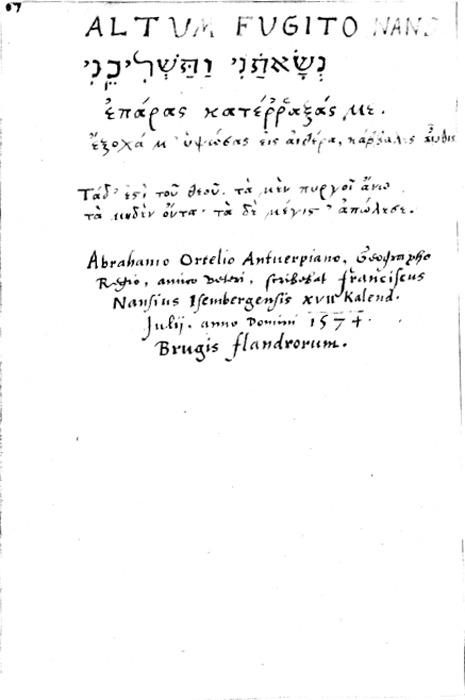 ALTUM FUGITO NANS
נְשָׂאתַנִי וַתַּשְׁלִיכֵנִי
ἐπάρας κατέῤῥαξάς με.
ἔξοχά μ' ὑψώσας εἰς αἰθέρα, κάββαλες αὖθις
Τάδ' ἐϛὶ τοῦ θεοῦ. τὰ μὲν πυργοῖ ἄνω
τὰ μηδὲν ὄντα· τὰ δὲ μέγιϛ' ἀπώλεσε.
Abrahamo Ortelio Antuerpiano, Geographo
Regio, amico veteri, scribebat franciscus
Nansius Isembergensis XVII Kalend.
Julij. anno Domini 1574.
Brugis flandrorum.